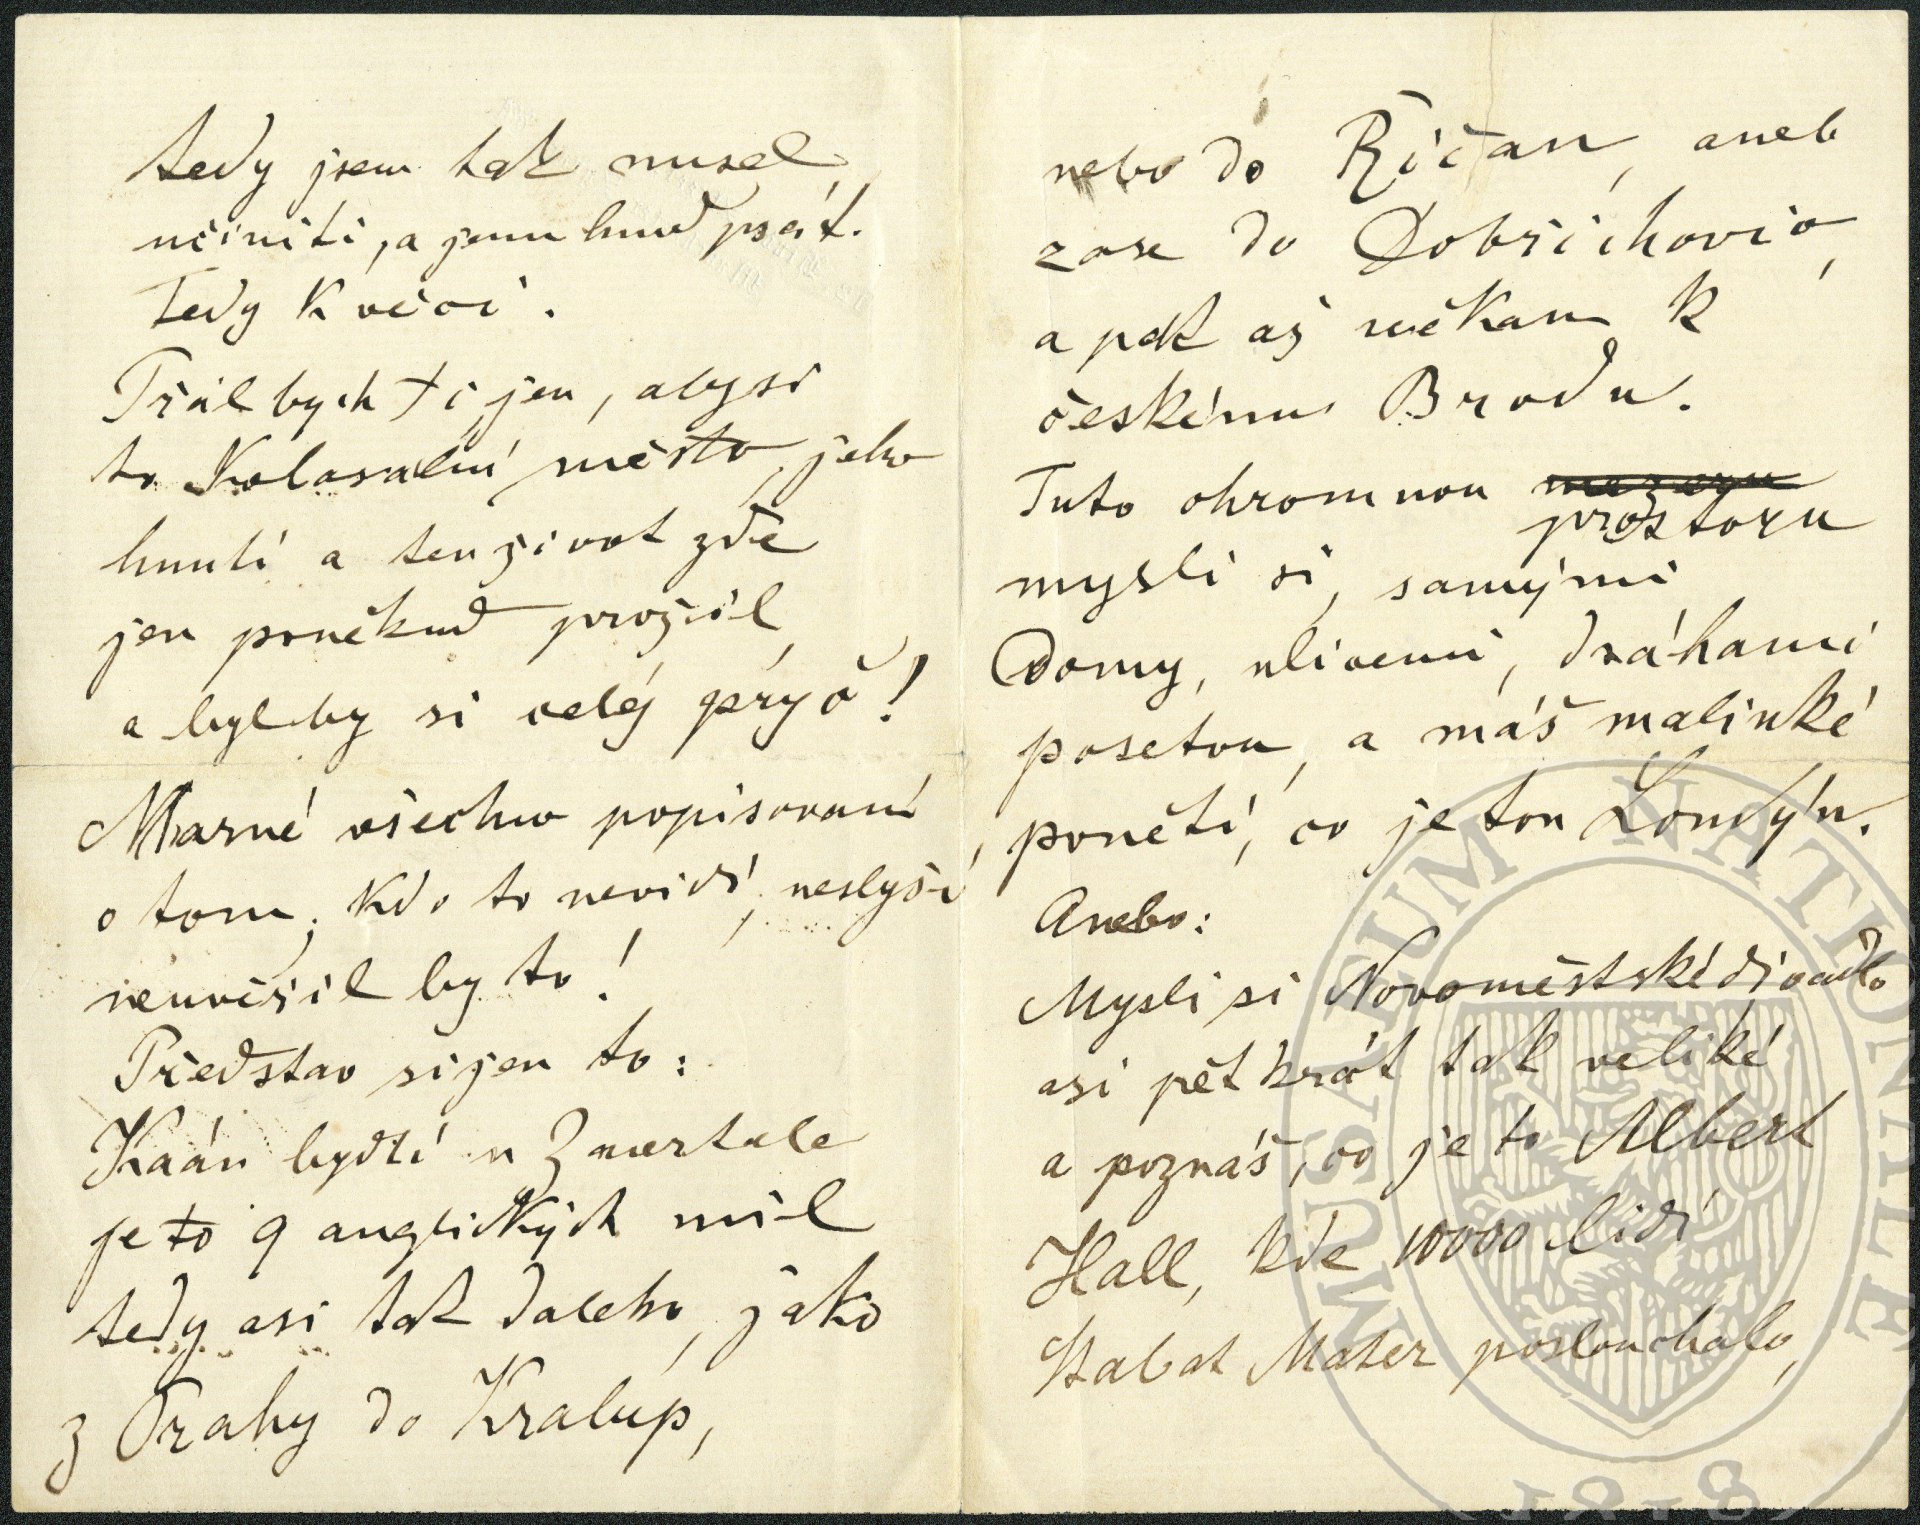 tedy jsem tak musel
učiniti, a jemu hned psát.
Tedy k věci.
Přál bych ti jen, abysi
to kolosalní město, jeho
hnutí a ten život zde
jen poněkud prožil,
a byl by si celý pryč!
Marné všechno popisovaní
o tom; kdo to nevidí, neslyší,
neuvěřil by to!
Představ si jen to:
Kaán bydlí u
je to 9 anglických mil
tedy asi tak daleko, jako
z Prahy do Kralup,
nebo do Řičan, aneb
zase do Dobřichovic,
a pak až někam k
českému Brodu.
Tuto ohromnou mezeru
prostoru
mysli si, samými
domy, ulicemi, dráhami
posetou, a máš malinké
ponětí, co je ton Londýn.
Anebo:
Mysli si Novoměstské divadlo
asi pětkrát tak veliké
a poznáš, co je to Albert
Hall, kde 10000 lidí
Stabat Mater poslouchalo,
MUSAEUM NATIONALE
1818